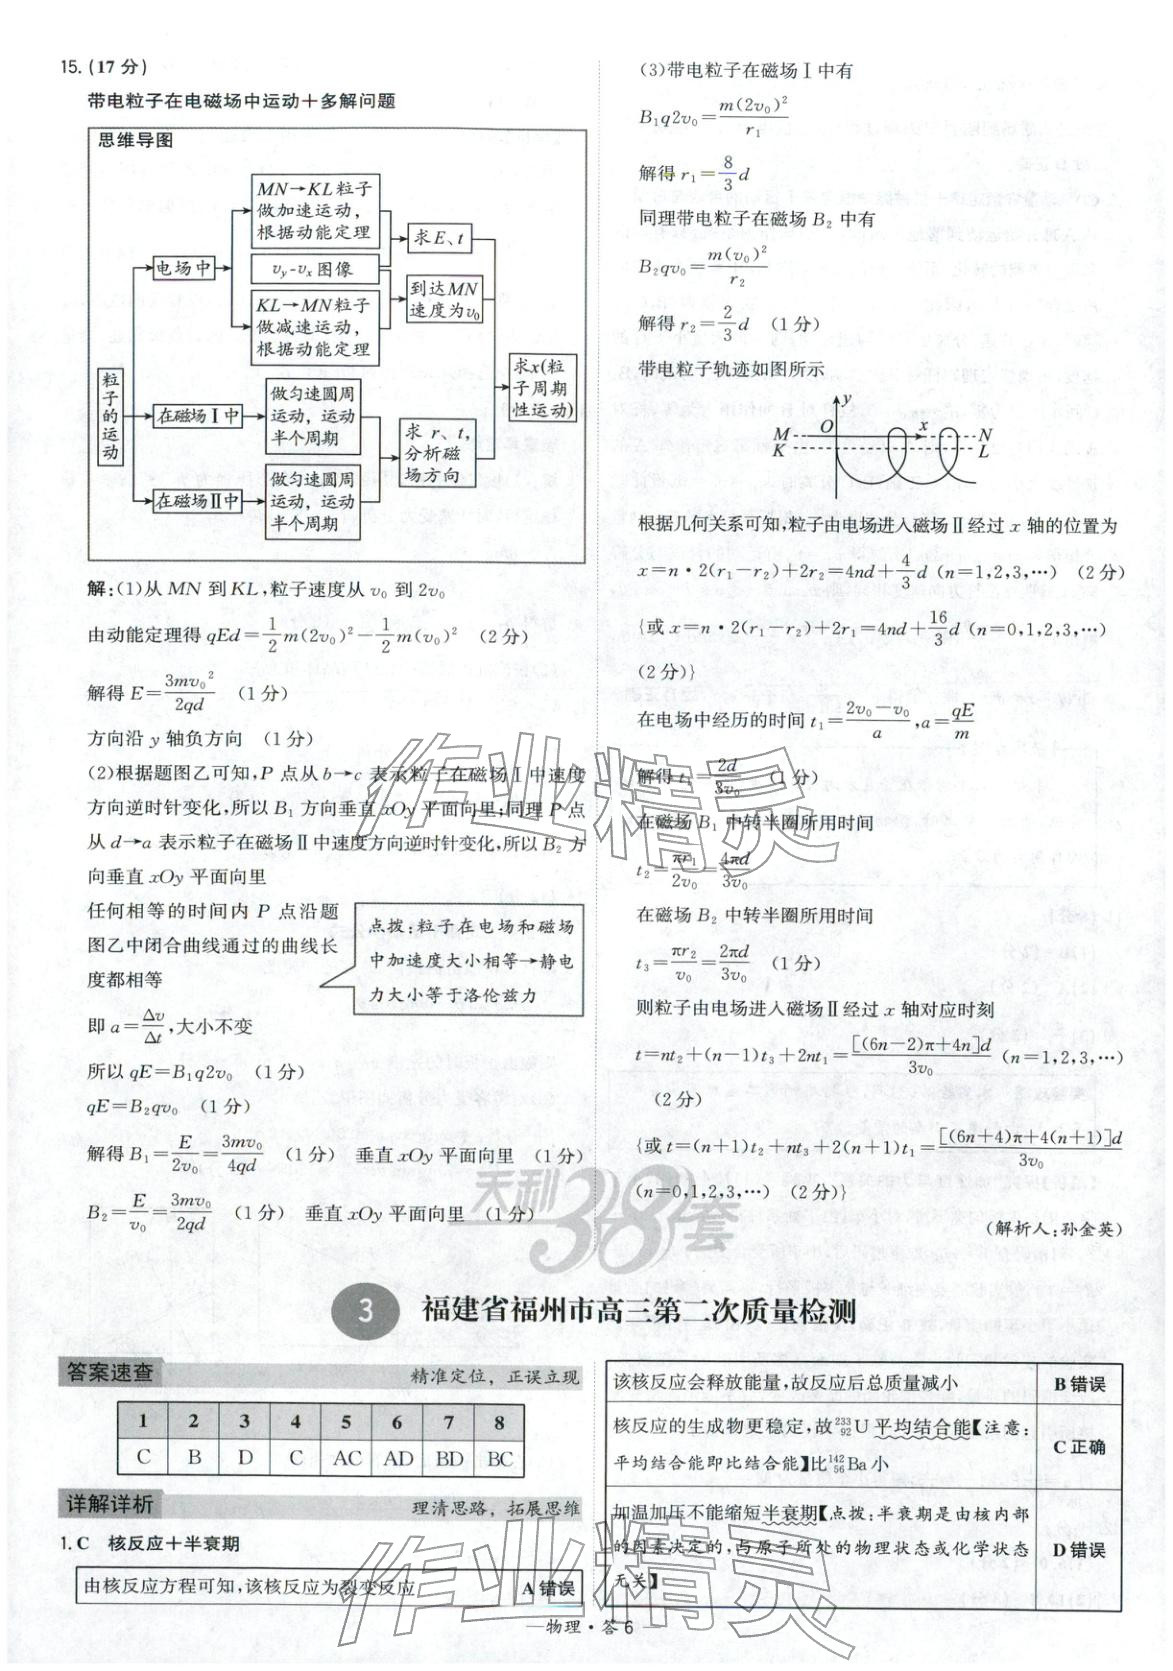 15. (17 分)
带电粒子在电磁场中运动＋多解问题
思维导图
粒子的运动
电场中
MN→KL 粒子做加速运动，根据动能定理
v_y-v_x 图像
KL→MN 粒子做减速运动，根据动能定理
求 E、t
到达 MN 速度为 v₀
在磁场Ⅰ中
做匀速圆周运动，运动半个周期
在磁场Ⅱ中
做匀速圆周运动，运动半个周期
求 r、t，分析磁场方向
求 x(粒子周期性运动)
解:(1)从 MN 到 KL,粒子速度从 v₀ 到 2v₀
由动能定理得 qEd=1/2 m(2v₀)²-1/2 m(v₀)² (2 分)
解得 E=3mv₀²/2qd (1 分)
方向沿 y 轴负方向 (1 分)
(2)根据题图乙可知,P 点从 b→c 表示粒子在磁场Ⅰ中速度
方向逆时针变化,所以 B₁ 方向垂直 xOy 平面向里;同理 P 点
从 d→a 表示粒子在磁场Ⅱ中速度方向逆时针变化,所以 B₂ 方
向垂直 xOy 平面向里
任何相等的时间内 P 点沿题
图乙中闭合曲线通过的曲线长
度都相等
点拨:粒子在电场和磁场
中加速度大小相等→静电
力大小等于洛伦兹力
即 a=Δv/Δt,大小不变
所以 qE=B₁q2v₀ (1 分)
qE=B₂qv₀ (1 分)
解得 B₁=E/2v₀=3mv₀/4qd (1 分) 垂直 xOy 平面向里 (1 分)
B₂=E/v₀=3mv₀/2qd (1 分) 垂直 xOy 平面向里 (1 分)
(3)带电粒子在磁场Ⅰ中有
B₁q2v₀=m(2v₀)²/r₁
解得 r₁=8/3 d
同理带电粒子在磁场 B₂ 中有
B₂qv₀=m(v₀)²/r₂
解得 r₂=2/3 d (1 分)
带电粒子轨迹如图所示
y
M O x N
K L
根据几何关系可知,粒子由电场进入磁场Ⅱ经过 x 轴的位置为
x=n·2(r₁-r₂)+2r₂=4nd+4/3 d (n=1,2,3,…) (2 分)
{或 x=n·2(r₁-r₂)+2r₁=4nd+16/3 d (n=0,1,2,3,…)
(2 分)}
在电场中经历的时间 t₁=(2v₀-v₀)/a,a=qE/m
解得 t₁=2d/3v₀ (1 分)
在磁场 B₁ 中转半圈所用时间
t₂=πr₁/2v₀=4πd/3v₀
在磁场 B₂ 中转半圈所用时间
t₃=πr₂/v₀=2πd/3v₀ (1 分)
则粒子由电场进入磁场Ⅱ经过 x 轴对应时刻
t=nt₂+(n-1)t₃+2nt₁=[(6n-2)π+4n]d/3v₀ (n=1,2,3,…)
(2 分)
{或 t=(n+1)t₂+nt₃+2(n+1)t₁=[(6n+4)π+4(n+1)]d/3v₀
(n=0,1,2,3,…) (2 分)}
(解析人:孙金英)
天利38套
3 福建省福州市高三第二次质量检测
答案速查 精准定位，正误立现
1 2 3 4 5 6 7 8
C B D C AC AD BD BC
详解详析 理清思路，拓展思维
1.C 核反应＋半衰期
由核反应方程可知,该核反应为裂变反应 A 错误
该核反应会释放能量,故反应后总质量减小 B 错误
核反应的生成物更稳定,故²³³₉₂U 平均结合能【注意:
平均结合能即比结合能】比¹⁴²₅₆Ba 小 C 正确
加温加压不能缩短半衰期【点拨:半衰期是由核内部
的因素决定的,与原子所处的物理状态或化学状态
无关】 D 错误
—物理·答 6—
作业精灵
作业精灵